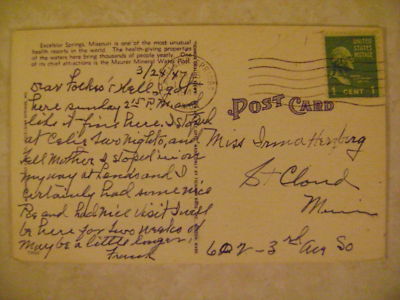 Excelsior Springs, Missouri is one of the most unusual
health resorts in the world. The health-giving properties
of the waters here bring thousands of people yearly. One
of its chief attractions is the Mauer Mineral Water Pool.
3/24/47
Dear Folks: Well I got
here Sunday 2nd P.M and
like it fine here. I stoped
at two nights, and
tell Mother I stoped in on
my way at and I
certainly had some nice
and had nice visit I will
be here for two weeks or
maybe a little longer.
Frank
POST CARD
UNITED
STATES
POSTAGE
1 CENT 1
Miss Irma
St Cloud
Minn
602 - 3rd Ave So